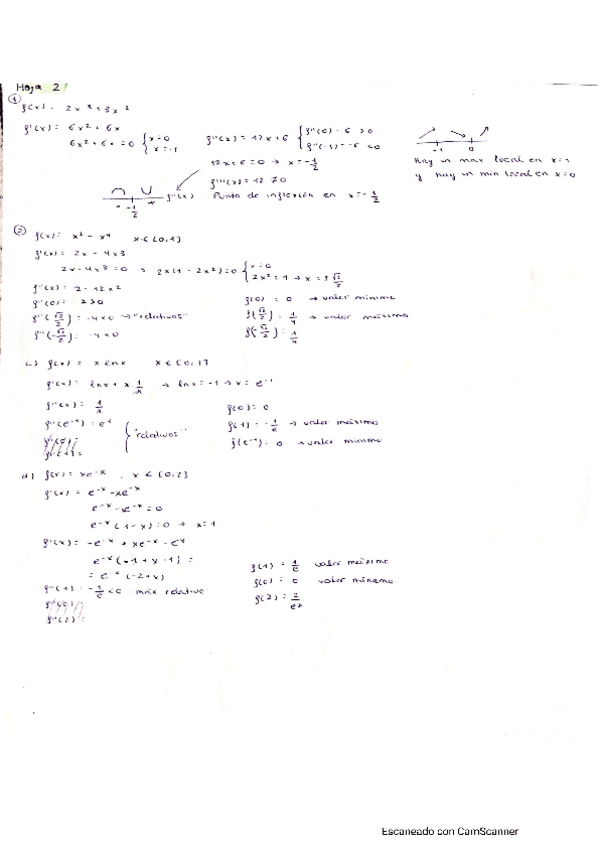 Hoja 2
① f(x) = 2x³+3x²
f'(x) = 6x²+6x
6x²+6x=0 { x=0 x=-1
f''(x) = 12x+6 { f''(0) = 6 >0 f''(-1) = -6 <0
12x+6=0 → x=-1/2
f'''(x) = 12 ≠0
-1 0
Hay un max local en x=-1
y hay un min local en x=0
-1/2 f''(x) Punto de inflexión en x=-1/2
② f(x) = x²-x⁴ x∈[0,1]
f'(x) = 2x-4x³
2x-4x³=0 → 2x(1-2x²)=0 { x=0 2x²=1 → x=±√2/2
f''(x) = 2-12x²
f''(0) = 2>0
f''(√2/2) = -4<0 → "relativos"
f''(-√2/2) = -4<0
f(0) = 0 → valor minimo
f(√2/2) = 1/4 → valor máximo
f(-√2/2) = 1/4
c) f(x) = x lnx x∈(0,1]
f'(x) = lnx + x 1/x → lnx=-1 → x=e⁻¹
f''(x) = 1/x
f''(e⁻¹) = e¹ "relativos"
f''(1) =
f(0) = 0
f(1) = -1/e → valor máximo
f(e⁻¹) = 0 → valor minimo
d) f(x) = xe⁻ˣ, x∈[0,2]
f'(x) = e⁻ˣ-xe⁻ˣ
e⁻ˣ-xe⁻ˣ=0
e⁻ˣ(1-x)=0 → x=1
f''(x) = -e⁻ˣ+xe⁻ˣ-e⁻ˣ
e⁻ˣ(-1+x-1) =
= e⁻ˣ(-2+x)
f''(1) = -1/e <0 máx relativo
f''(0)
f''(2) =
f(1) = 1/e valor máximo
f(0) = 0 valor mínimo
f(2) = 2/e²
Escaneado con CamScanner